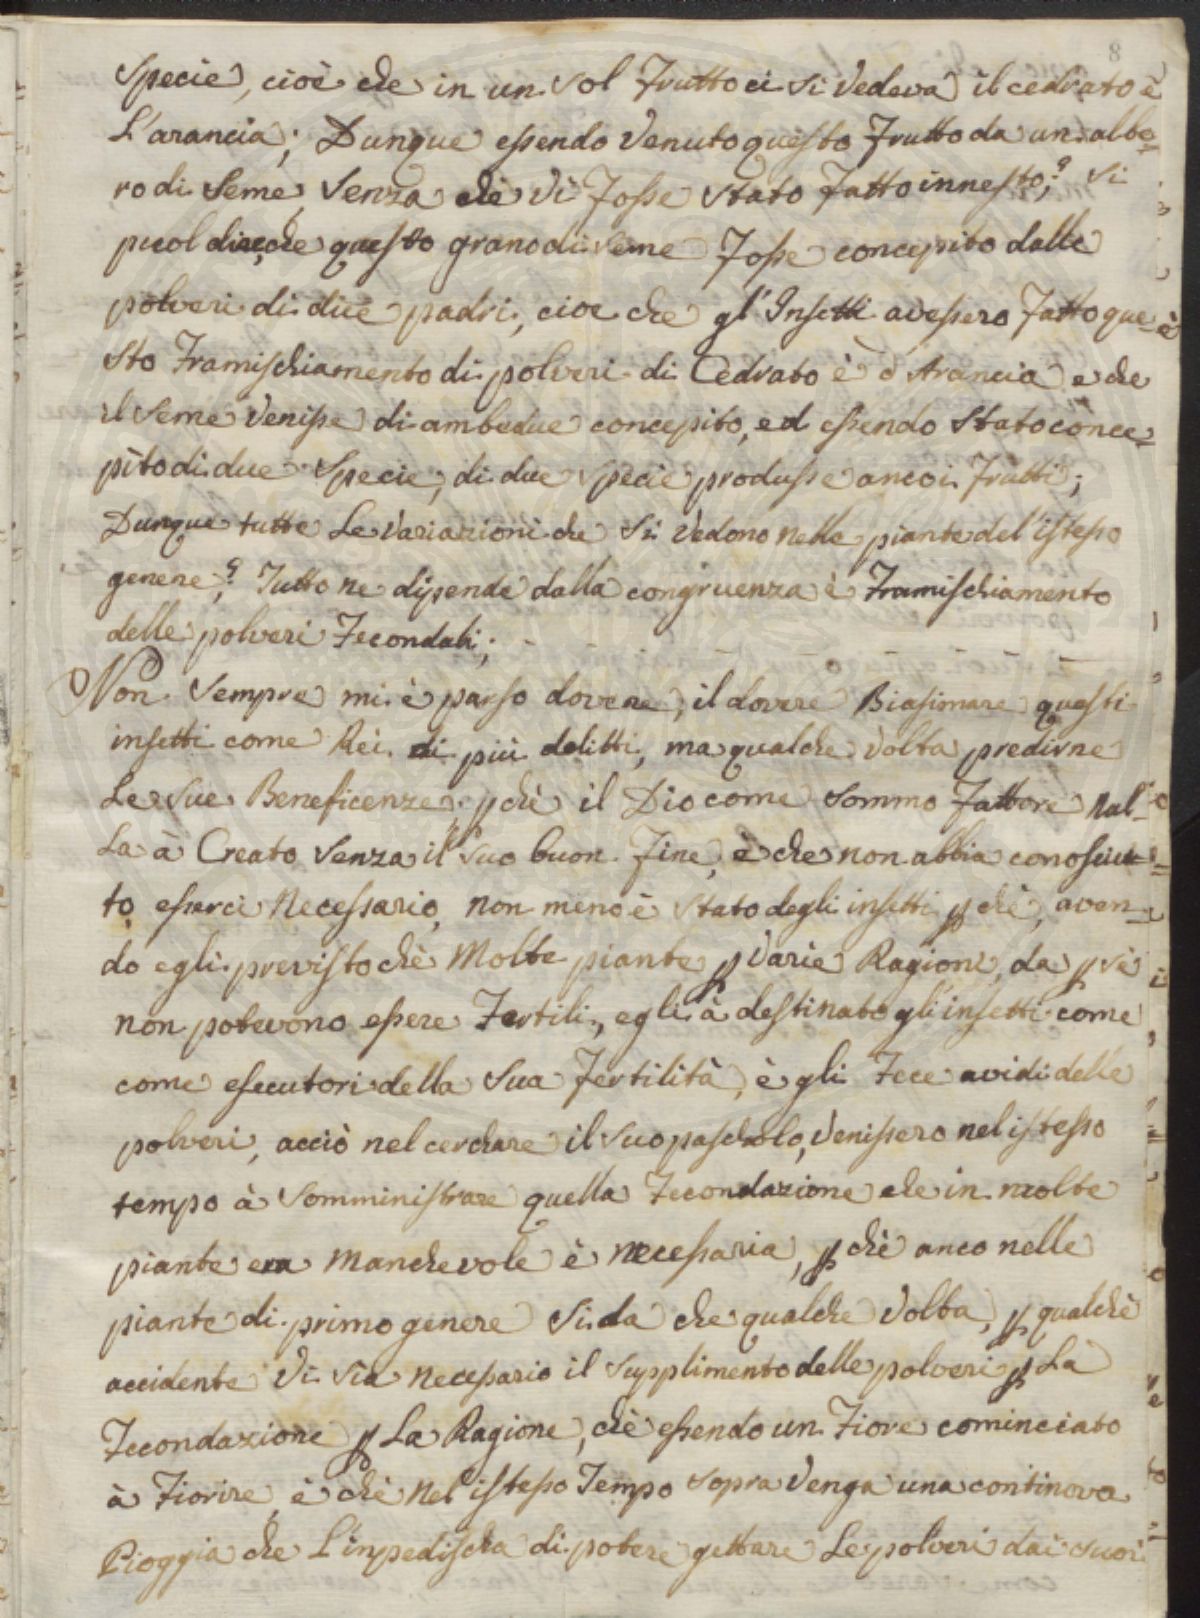 8
Specie, cioè che in un sol Frutto ci si vedeva il cedrato è
L'arancia; Dunque essendo venuto questo Frutto da un albe=
ro di Seme Senza chè vi Fosse stato Fatto innesto;? si
puol dire, che questo grano di seme Fosse concepito dalle
polveri di due padri, cioe che gl'Insetti avessero Fatto que=
sto Framischiamento di polveri di Cedrato è d'Arancia e che
il Seme venisse di ambedue concepito, ed essendo Stato conce=
pito di due Specie, di due specie produsse anco i Frutti;
Dunque tutte Le Variazioni che Si vedono nelle piante del'istesso
genere;? Tutto ne dipende dalla congruenza è Framischiamento
delle polveri Fecondati;
Non Sempre mi è parso dovere, il dovere Biasimare questi
insetti come Rei di più delitti, ma qualche volta predirne
Le sue Beneficenze; pchè il Dio come sommo Fattore nul=
La à Creato Senza il suo buon Fine, è che non abbia conosciu=
to esserci Necessario, non meno è stato degli insetti pchè, aven=
do egli previsto chè Molte piante p varie Ragioni, da p se
non potevono essere Fertili, egli à destinato gli insetti come
come esecutori della Sua Fertilità, è gli Fece avidi delle
polveri, acciò nel cerchare il suo pascholo, venissero nel istesso
tempo à Somministrare quella Fecondazione che in molte
piante era Manchevole è necessaria, pchè anco nelle
piante di primo genere Si da che qualche volta, p qualchè
accidente Vi Sia necessario il supplimento delle polveri p La
Fecondazione p La Ragione, chè essendo un Fiore cominciato
à Fiorire è chè nel istesso Tempo sopra Venga una continova
Pioggia che L'inpedischa di potere gettare Le polveri dai suoi